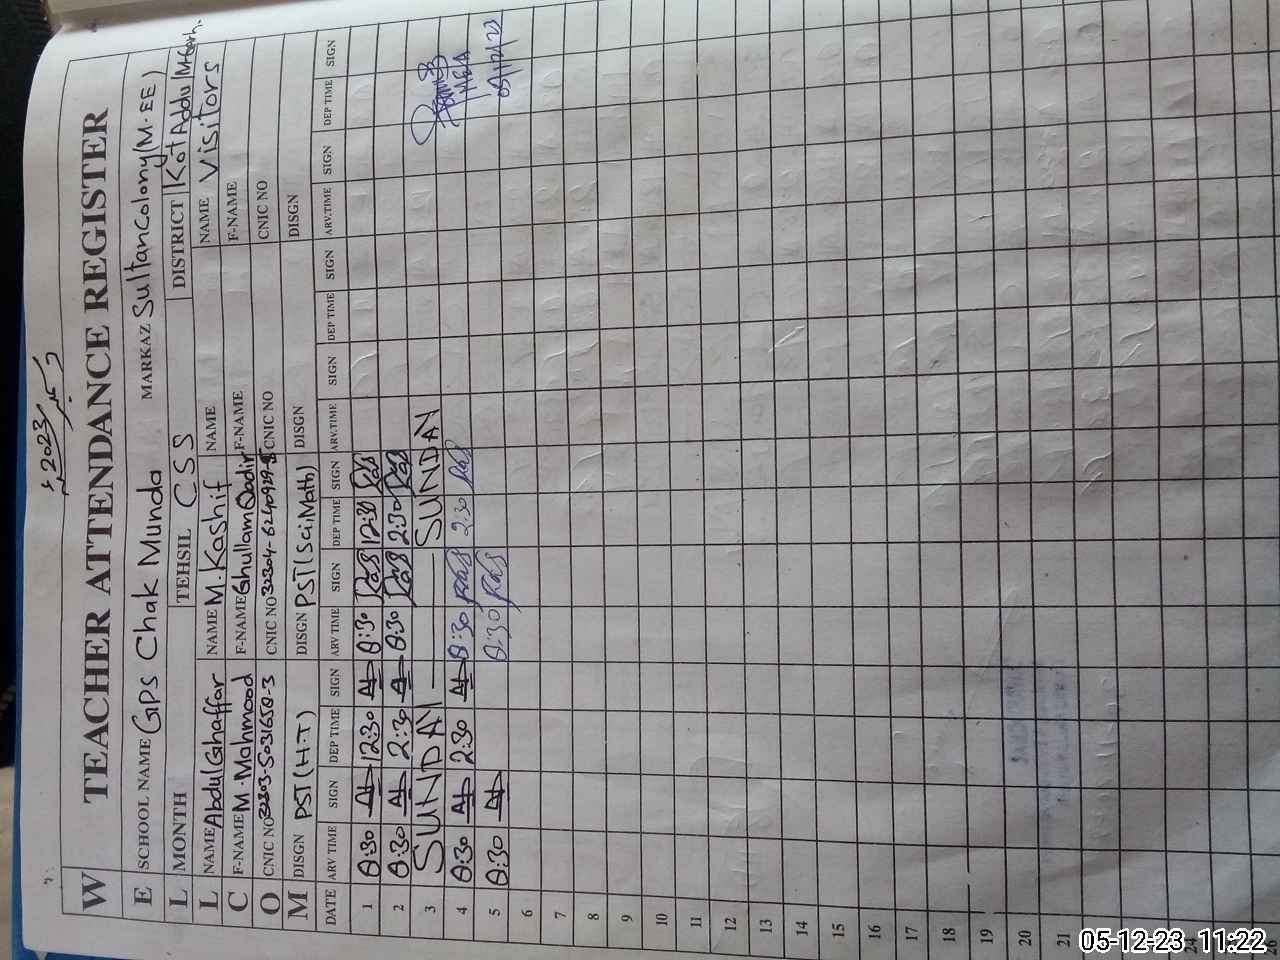 دسمبر 2023ء
W TEACHER ATTENDANCE REGISTER
E SCHOOL NAME GPS Chak Munda MARKAZ Sultan Colony (M.EE)
L MONTH TEHSIL CSS DISTRICT Kot Addu/M.Garh.
L NAME Abdul Ghaffar NAME M. Kashif NAME NAME Visitors
C F-NAME M. Mahmood F-NAME Ghullam Qadir F-NAME F-NAME
O CNIC NO CNIC NO CNIC NO CNIC NO
M DISGN PST (H.T) DISGN PST (Sci Math) DISGN DISGN
DATE ARV TIME SIGN DEP TIME SIGN ARV TIME SIGN DEP TIME SIGN ARV.TIME SIGN DEP TIME SIGN ARV.TIME SIGN DEP TIME SIGN
1 8:30 12:30 8:30 12:30
2 8:30 2:30 8:30 2:30
3 SUNDAY SUNDAY
4 8:30 2:30 8:30 2:30
5 8:30 8:30
6
7
8
9
10
11
12
13
14
15
16
17
18
19
20
21
24
26
05-12-23 11:22